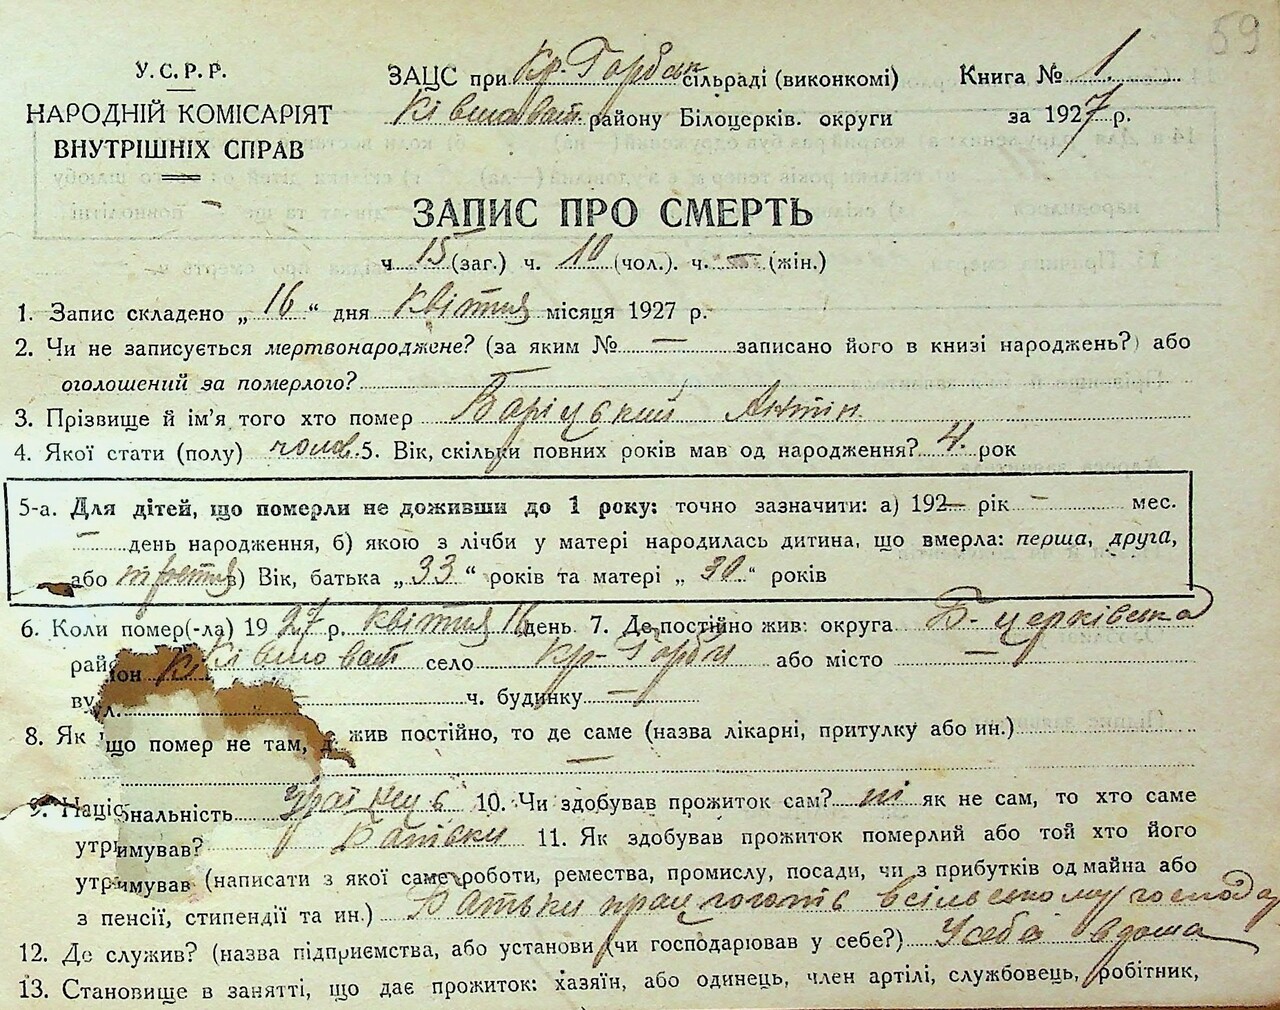 59
У.С.Р.Р.
НАРОДНІЙ КОМІСАРІЯТ
ВНУТРІШНІХ СПРАВ
ЗАЦС при Кр-Горбан сільраді (виконкомі)
Ківшоват. району Білоцерків. округи
Книга № 1.
за 1927 р.
ЗАПИС ПРО СМЕРТЬ
ч 15 (заг.) ч. 10 (чол.). ч. — (жін.)
1. Запис складено „ 16 “ дня квітня місяця 1927 р.
2. Чи не записується мертвонароджене? (за яким № — записано його в книзі народжень?) або
оголошений за померлого?
3. Прізвище й ім'я того хто помер Антін
4. Якої стати (полу) чолов. 5. Вік, скільки повних років мав од народження? 4. рок
5-а. Для дітей, що померли не доживши до 1 року: точно зазначити: а) 192— рік — мес.
— день народження, б) якою з лічби у матері народилась дитина, що вмерла: перша, друга,
або третя в) Вік, батька „ 33 “ років та матері „ 30 “ років
6. Коли помер(-ла) 1927 р. квітня 16 день 7. Де постійно жив: округа Б-церківська
район Ківшоват село Кр-Горби або місто —
вул. — ч. будинку —
8. Як що помер не там, д. жив постійно, то де саме (назва лікарні, притулку або ин.)
—
9. Національність Українець 10. Чи здобував прожиток сам? ні як не сам, то хто саме
утримував? Батьки 11. Як здобував прожиток померлий або той хто його
утримував (написати з якої саме роботи, ремества, промислу, посади, чи з прибутків од майна або
з пенсії, стипендії та ин.) Батьки працюють в сільському господ
12. Де служив? (назва підприємства, або установи (чи господарював у себе?) У себе вдома
13. Становище в занятті, що дає прожиток: хазяїн, або одинець, член артілі, службовець, робітник,